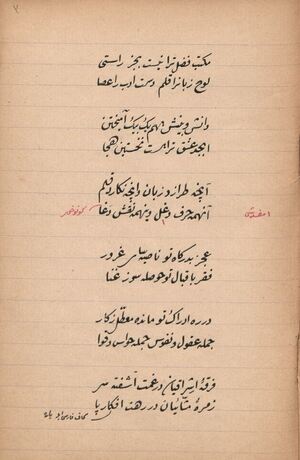 مکتب فضل ترا نیست بجز راستی
لوح زبانرا قلم دست ادب را عصا
دانش و بینش بهم یک بیک آمیختن
ابجد عشق تراست نخستین هجا
آنچه طرازد زبان و آنچه نگارد قلم
آنهمه حرف دغل وینهمه نقش دغا
عجز بدرکاه تو ناصیه سای غرور
فقر باقبال تو حوصله سوز غنا
در ره ادراک تو مانده معطل ز کار
جمله عقول و نفوس جمله حواس و قوا
فرقهٔ اشراقیان در غمت آشفته سر
زمرهٔ مشائیان در رهت افکار پا